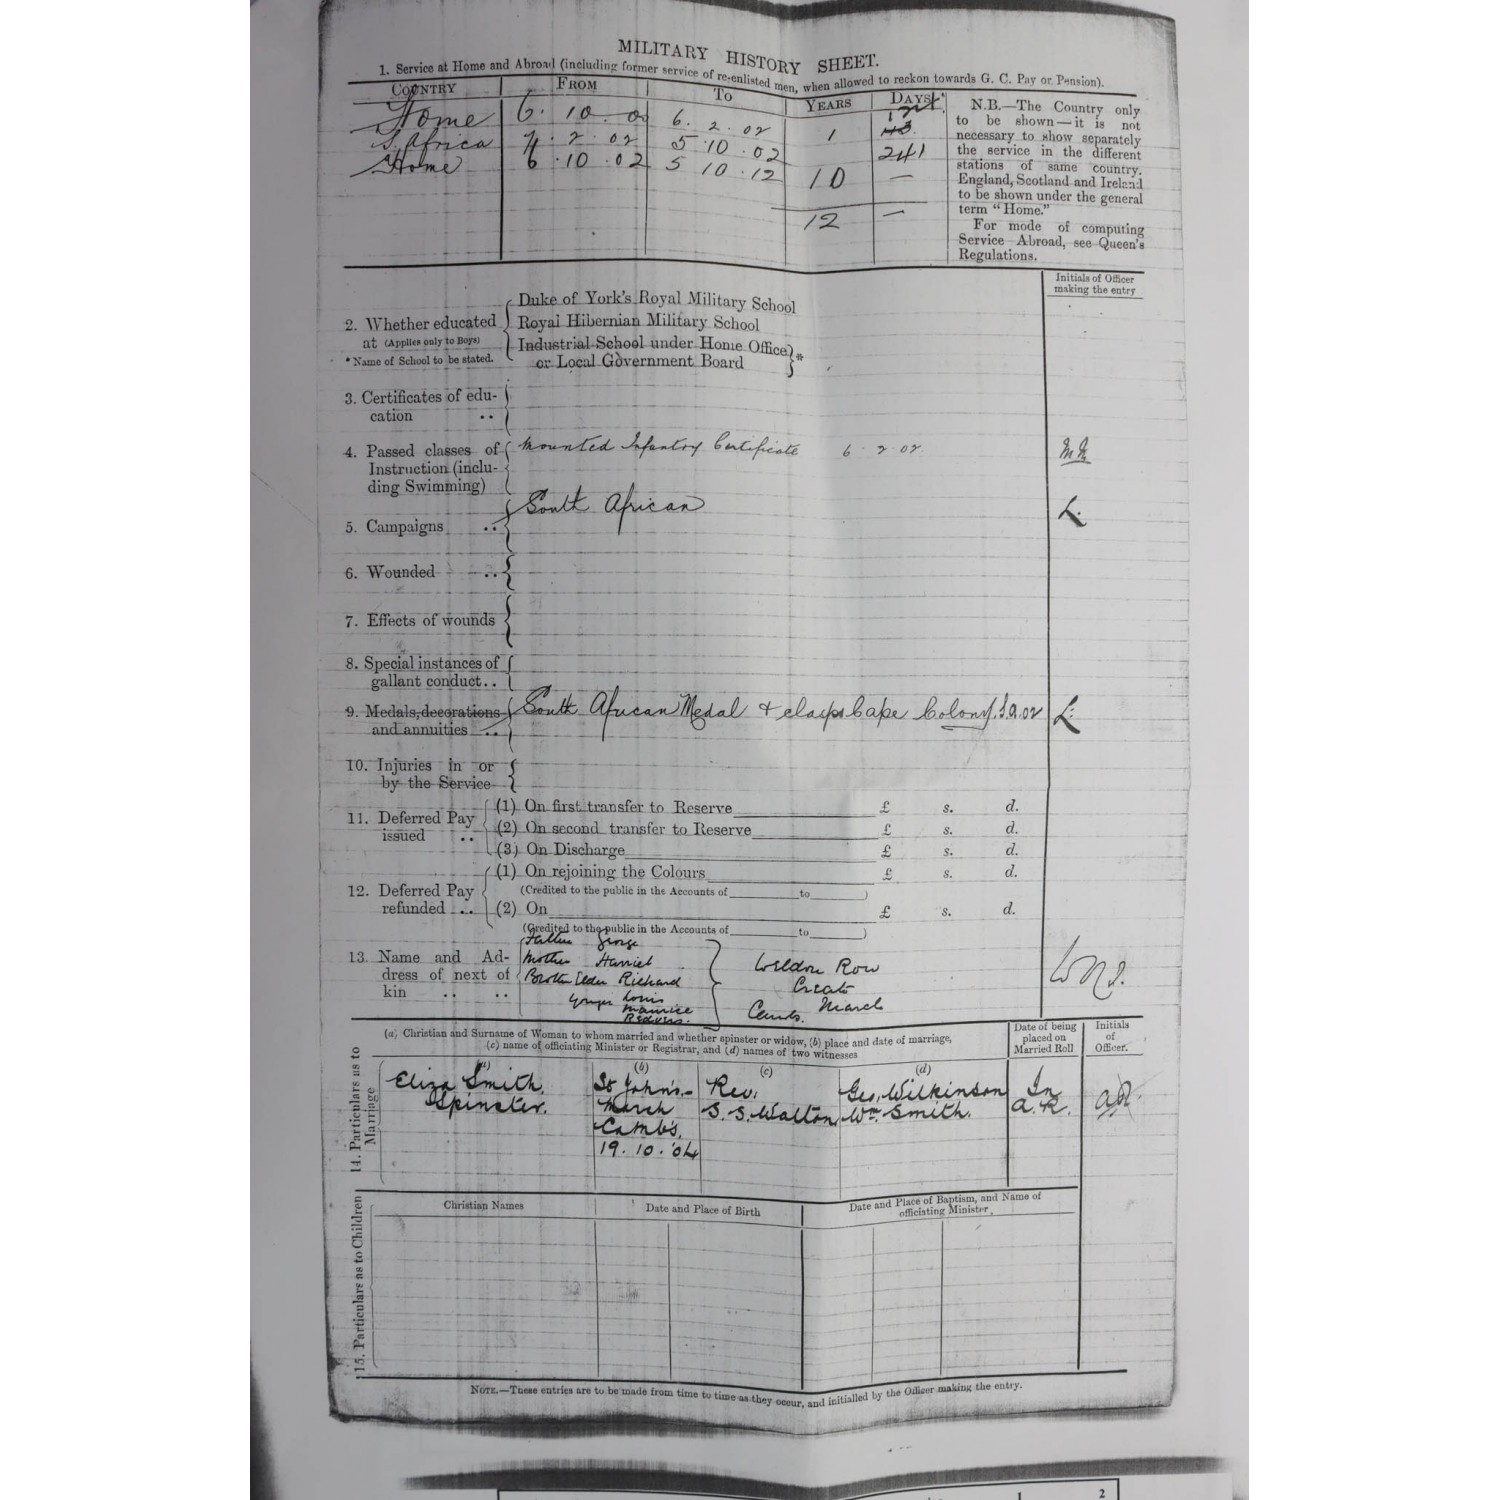 MILITARY HISTORY SHEET.
1. Service at Home and Abroad (including former service of re-enlisted men, when allowed to reckon towards G. C. Pay or Pension).
COUNTRY FROM To YEARS DAYS
Home 6. 10. 00 6. 2. 02 1
S. Africa 7. 2. 02 5 10. 02 241
Home 6. 10. 02 5 10. 12 10 —
12 —
N.B.—The Country only
to be shown—it is not
necessary to show separately
the service in the different
stations of same country.
England, Scotland and Ireland
to be shown under the general
term "Home."
For mode of computing
Service Abroad, see Queen's
Regulations.
Initials of Officer
making the entry
2. Whether educated
at (Applies only to Boys)
* Name of School to be stated.
Duke of York's Royal Military School
Royal Hibernian Military School
Industrial School under Home Office
or Local Government Board *
3. Certificates of edu-
cation ..
4. Passed classes of
Instruction (inclu-
ding Swimming)
Mounted Infantry Certificate 6. 2. 02.
5. Campaigns ..
South African L.
6. Wounded ..
7. Effects of wounds
8. Special instances of
gallant conduct..
9. Medals, decorations
and annuities ..
South African Medal & clasps Cape Colony. S.A. 02 L.
10. Injuries in or
by the Service
11. Deferred Pay
issued ..
(1) On first transfer to Reserve £ s. d.
(2) On second transfer to Reserve £ s. d.
(3) On Discharge £ s. d.
12. Deferred Pay
refunded ..
(1) On rejoining the Colours £ s. d.
(Credited to the public in the Accounts of to )
(2) On £ s. d.
(Credited to the public in the Accounts of to )
13. Name and Ad-
dress of next of
kin .. ..
Father George
Mother Harriet
Brother Elder Richard
Younger Louis
Maurice
Redvers.
Weldon Row
Creek
March
Cambs.
14. Particulars as to
Marriage
(a) Christian and Surname of Woman to whom married and whether spinster or widow, (b) place and date of marriage,
(c) name of officiating Minister or Registrar, and (d) names of two witnesses
Date of being
placed on
Married Roll
Initials
of
Officer.
(a) (b) (c) (d)
Eliza Smith.
Spinster.
St John's.
March
Cambs.
19. 10. '04
Rev.
S. S. Walton
Geo. Wilkinson
Wm Smith.
In
A. R.
15. Particulars as to Children
Christian Names
Date and Place of Birth
Date and Place of Baptism, and Name of
officiating Minister.
NOTE.—These entries are to be made from time to time as they occur, and initialled by the Officer making the entry.
1 2